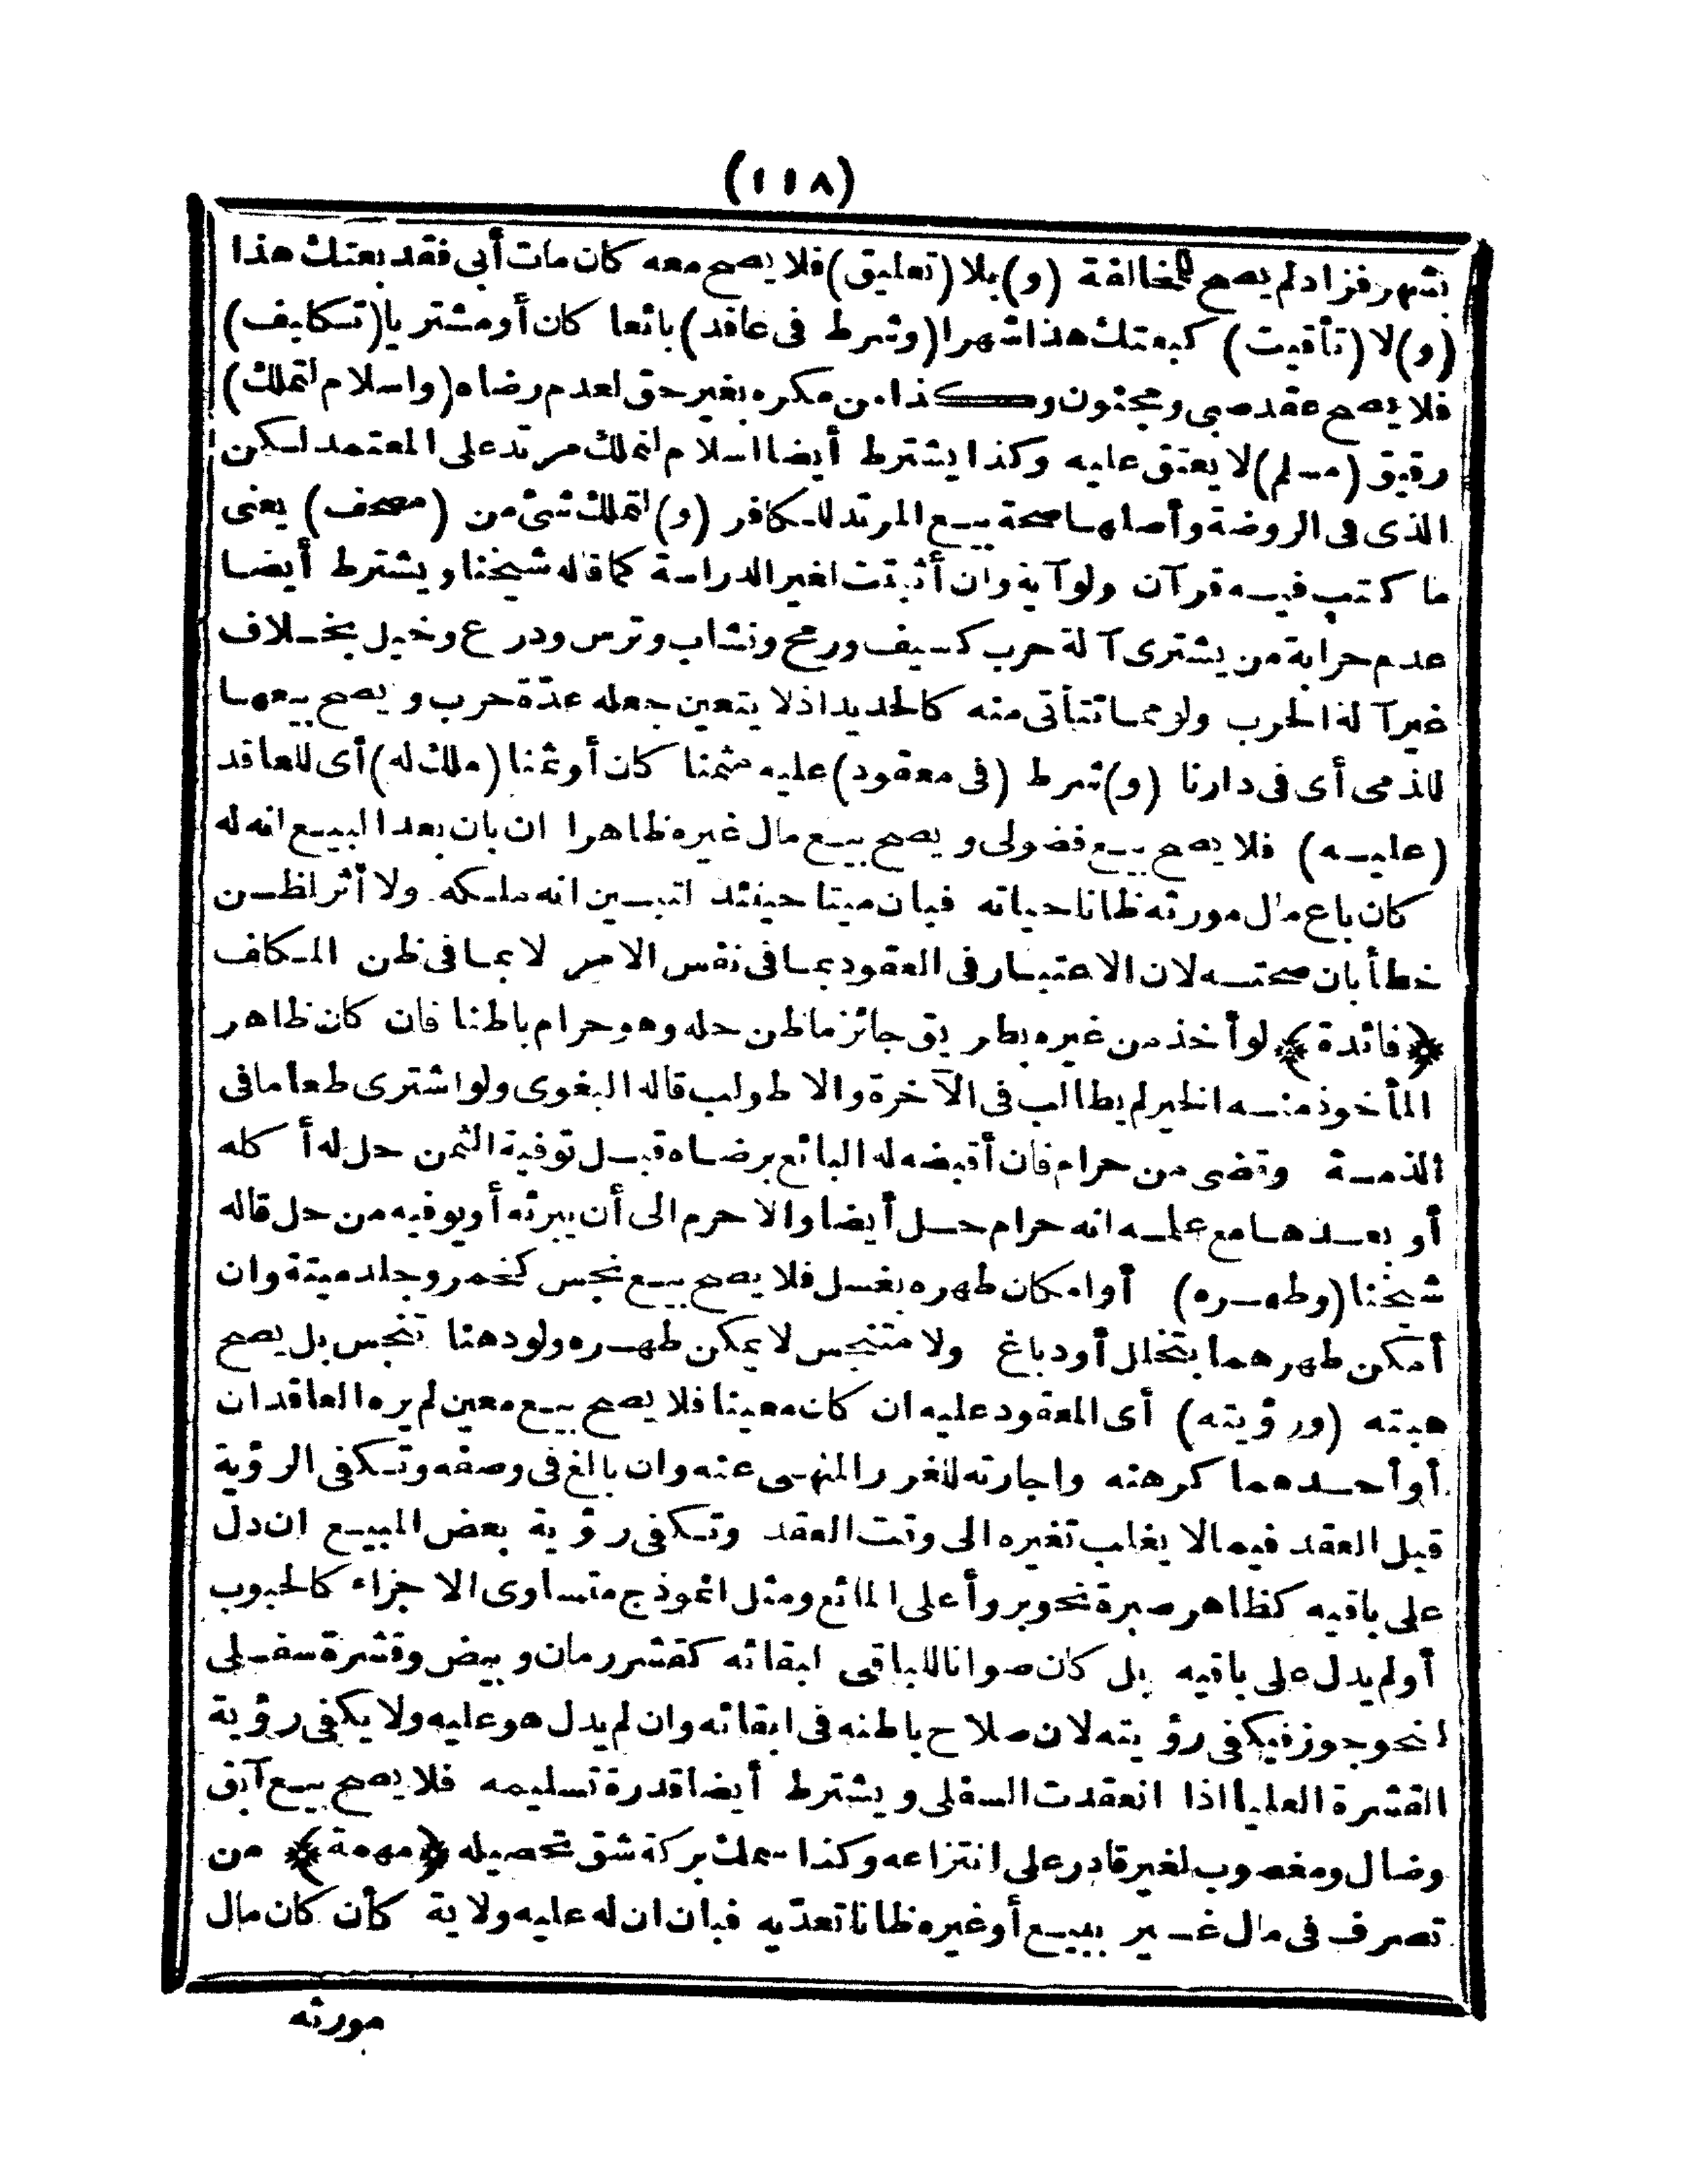 (١١٨)
بشهر فزاد لم يصح للمخالفة (و) بلا (تعليق) فلا يصح معه كان مات أبى فقد بعتك هذا
(و) لا (تأقيت) كبعتك هذا شهرا (وشرط فى عاقد) بائعا كان أو مشتريا (تكليف)
فلا يصح عقد صبى ومجنون وكذا من مكره بغير حق لعدم رضاه (واسلام لتملك)
رقيق (مسلم) لا يعتق عليه وكذا يشترط أيضا اسلام لتملك مرتد على المعتمد لكن
الذى فى الروضة وأصلها صحة بيع المرتد للكافر (و) لتملك شئ من (مصحف) يعنى
ما كتب فيه قرآن ولو آية وان أثبتت لغير الدراسة كما قاله شيخنا ويشترط أيضا
عدم حرابة من يشترى آلة حرب كسيف ورمح ونشاب وترس ودرع وخيل بخلاف
غير آلة الحرب ولو مما تتأتى منه كالحديد اذ لا يتعين جعله عدّة حرب ويصح بيعها
للذمى أى فى دارنا (و) شرط (فى معقود) عليه مثمنا كان أو ثمنا (ملك له) أى للعاقد
(عليه) فلا يصح بيع فضولى ويصح بيع مال غيره ظاهرا ان بان بعد البيع انه له
كان باع مال مورثه ظانا حياته فبان ميتا حينئذ لتبين انه ملكه ولا أثر لظن
خطأ بان صحته لان الاعتبار فى العقود بما فى نفس الامر لا بما فى ظن المكلف
﴿فائدة﴾ لو أخذ من غيره بطريق جائز ما ظن حله وهو حرام باطنا فان كان ظاهر
المأخوذ منه الخير لم يطالب فى الآخرة والا طولب قاله البغوى ولو اشترى طعاما فى
الذمة وقضى من حرام فان أقبضه له البائع برضاه قبل توفية الثمن حل له أكله
أو بعدها مع علمه انه حرام حل أيضا والا حرم الى أن يبرئه أو يوفيه من حل قاله
شيخنا (وطهره) أو امكان طهره بغسل فلا يصح بيع نجس كخمر وجلد ميتة وان
أمكن طهرهما بتخلل أو دباغ ولا متنجس لا يمكن طهره ولو دهنا تنجس بل يصح
هبته (ورؤيته) أى المعقود عليه ان كان معينا فلا يصح بيع معين لم يره العاقدان
أو أحدهما كرهنه واجارته للغرر المنهى عنه وان بالغ فى وصفه وتكفى الرؤية
قبل العقد فيما لا يغلب تغيره الى وقت العقد وتكفى رؤية بعض المبيع ان دل
على باقيه كظاهر صبرة نحو بر وأعلى المائع ومثل انموذج متساوى الاجزاء كالحبوب
أو لم يدل على باقيه بل كان صوانا للباقى لبقائه كقشر رمان وبيض وقشرة سفلى
لنحو جوز فيكفى رؤيته لان صلاح باطنه فى ابقائه وان لم يدل هو عليه ولا يكفى رؤية
القشرة العليا اذا انعقدت السفلى ويشترط أيضا قدرة تسليمه فلا يصح بيع آبق
وضال ومغصوب لغير قادر على انتزاعه وكذا سمك بركة شق تحصيله ﴿مهمة﴾ من
تصرف فى مال غير ببيع أو غيره ظانا تعدّيه فبان ان له عليه ولاية كأن كان مال
مورثه